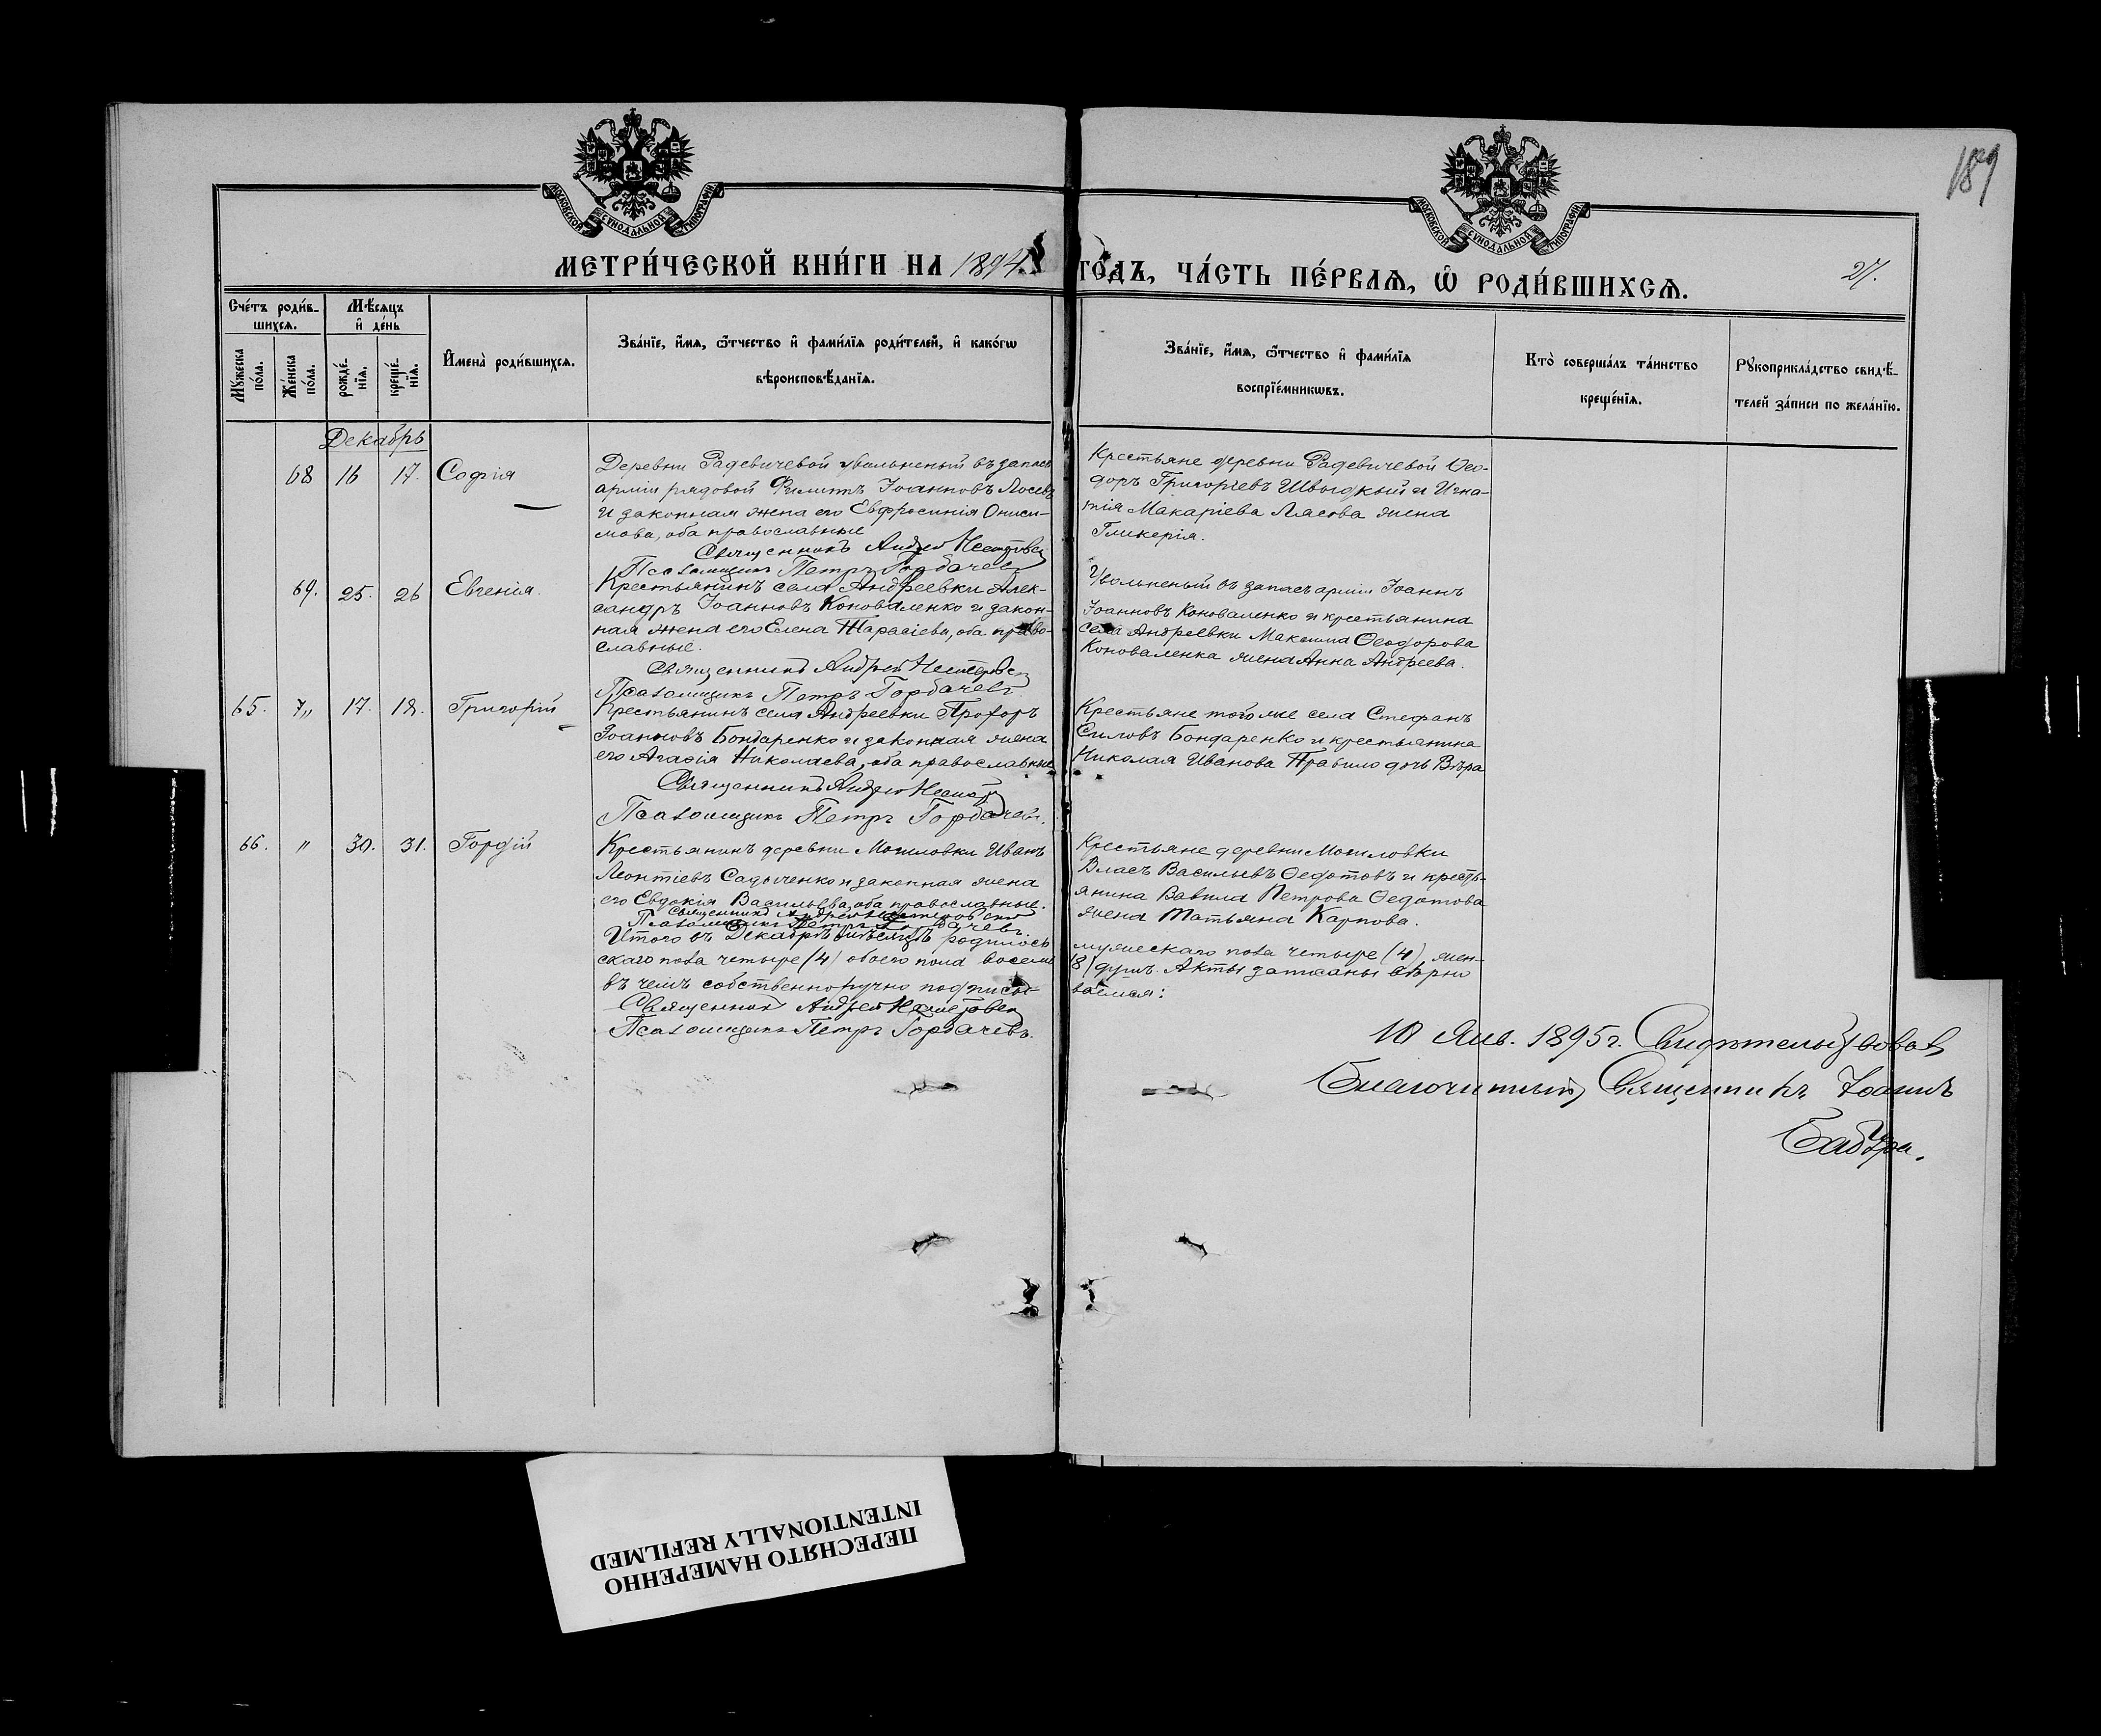 189
МОСКОВСКОЙ СѴНОДАЛЬНОЙ ТИПОГРАФІИ
МОСКОВСКОЙ СѴНОДАЛЬНОЙ ТИПОГРАФІИ
МЕТРИ́ЧЕСКОЙ КНИ́ГИ НА 1894 ГО́ДЪ, ЧА́СТЬ ПЕ́РВАѦ, Ѡ҆ РОДИ́ВШИХСѦ.
27.
Сче́тъ роди́в-
шихсѧ.
Мꙋ́жеска по́ла.
Же́нска по́ла.
Мѣ́сѧцъ
и҆ де́нь
рожде́-нїѧ.
креще́-нїѧ.
И҆мена̀ роди́вшихсѧ.
Зва́нїе, и҆́мѧ, ѻ҆́тчество и҆ фами́лїѧ роди́телей, и҆ како́гѡ
вѣроисповѣ́данїѧ.
Зва́нїе, и҆́мѧ, ѻ҆́тчество и҆ фами́лїѧ
воспрїе́мникѡвъ.
Кто̀ соверша́лъ та́инство
креще́нїѧ.
Рꙋкоприкла́дство свидѣ́-
телей за́писи по жела́нїю.
Декабрь
68 16 17. Софія
Деревни Радевичевой увольненый въ запасъ
арміи рядовой Филиппъ Іоанновъ Лосевъ
и законная жена его Евфросинія Ониси-
мова, оба православные
Священникъ Андрей
Псаломщикъ Петръ Горбачевъ
Крестьяне деревни Радевичевой Ѳео-
доръ Григоріевъ Швыдкый и Игна-
тія Макаріева Лясова жена
Гликерія.
69. 25. 26 Евгенія.
Крестьянинъ села Андреевки Алек-
сандръ Іоанновъ Коноваленко и закон-
ная жена его Елена Тарасіева, оба право-
славные.
Священникъ Андрей
Псаломщикъ Петръ Горбачевъ.
Увольненый въ запасъ арміи Іоаннъ
Іоанновъ Коноваленко и крестьянина
села Андреевки Максима Ѳеодорова
Коноваленка жена Анна Андреева.
65. 17. 18. Григорій
Крестьянинъ села Андреевки Прохоръ
Іоанновъ Бондаренко и законная жена
его Агафія Николаева, оба православные
Священникъ Андрей
Псаломщикъ Петръ Горбачевъ.
Крестьяне того же села Стефанъ
Бондаренко и крестьянина
Николая Иванова Правило дочь Вѣра
66. " 30. 31. Гордій
Крестьянинъ деревни Мошловки Иванъ
Леонтіевъ Садыченко и законная жена
его Евдокія Васильева, оба православные.
Священникъ Андрей
Псаломщикъ Петръ Горбачевъ.
Крестьяне деревни Мошловки
Власъ Васильевъ Ѳедотовъ и кресть-
янина Вавила Петрова Ѳедотова
жена Татьяна Карпова.
Итого въ Декабрѣ мѣсяцѣ родилось мужескаго пола четыре (4), жен-
скаго пола четыре (4) обоего пола восемь (8) душъ. Акты записаны вѣрно
въ чемъ собственноручно подписы- ваемся:
Священникъ Андрей
Псаломщикъ Петръ Горбачевъ.
10 Янв. 1895 г. Свидѣтельствовалъ
Благочинный, Священникъ Іоаннъ
Бабура.
ПЕРЕСНЯТО НАМЕРЕННО
INTENTIONALLY REFILMED